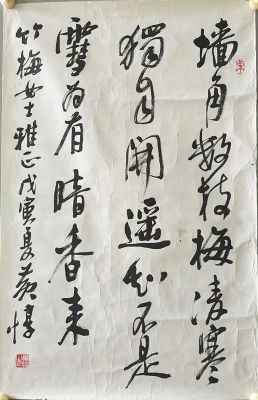 墙角数枝梅凌寒
獨自開遥知不是
雪为有暗香来
竹梅女士雅正戊寅夏黄惇